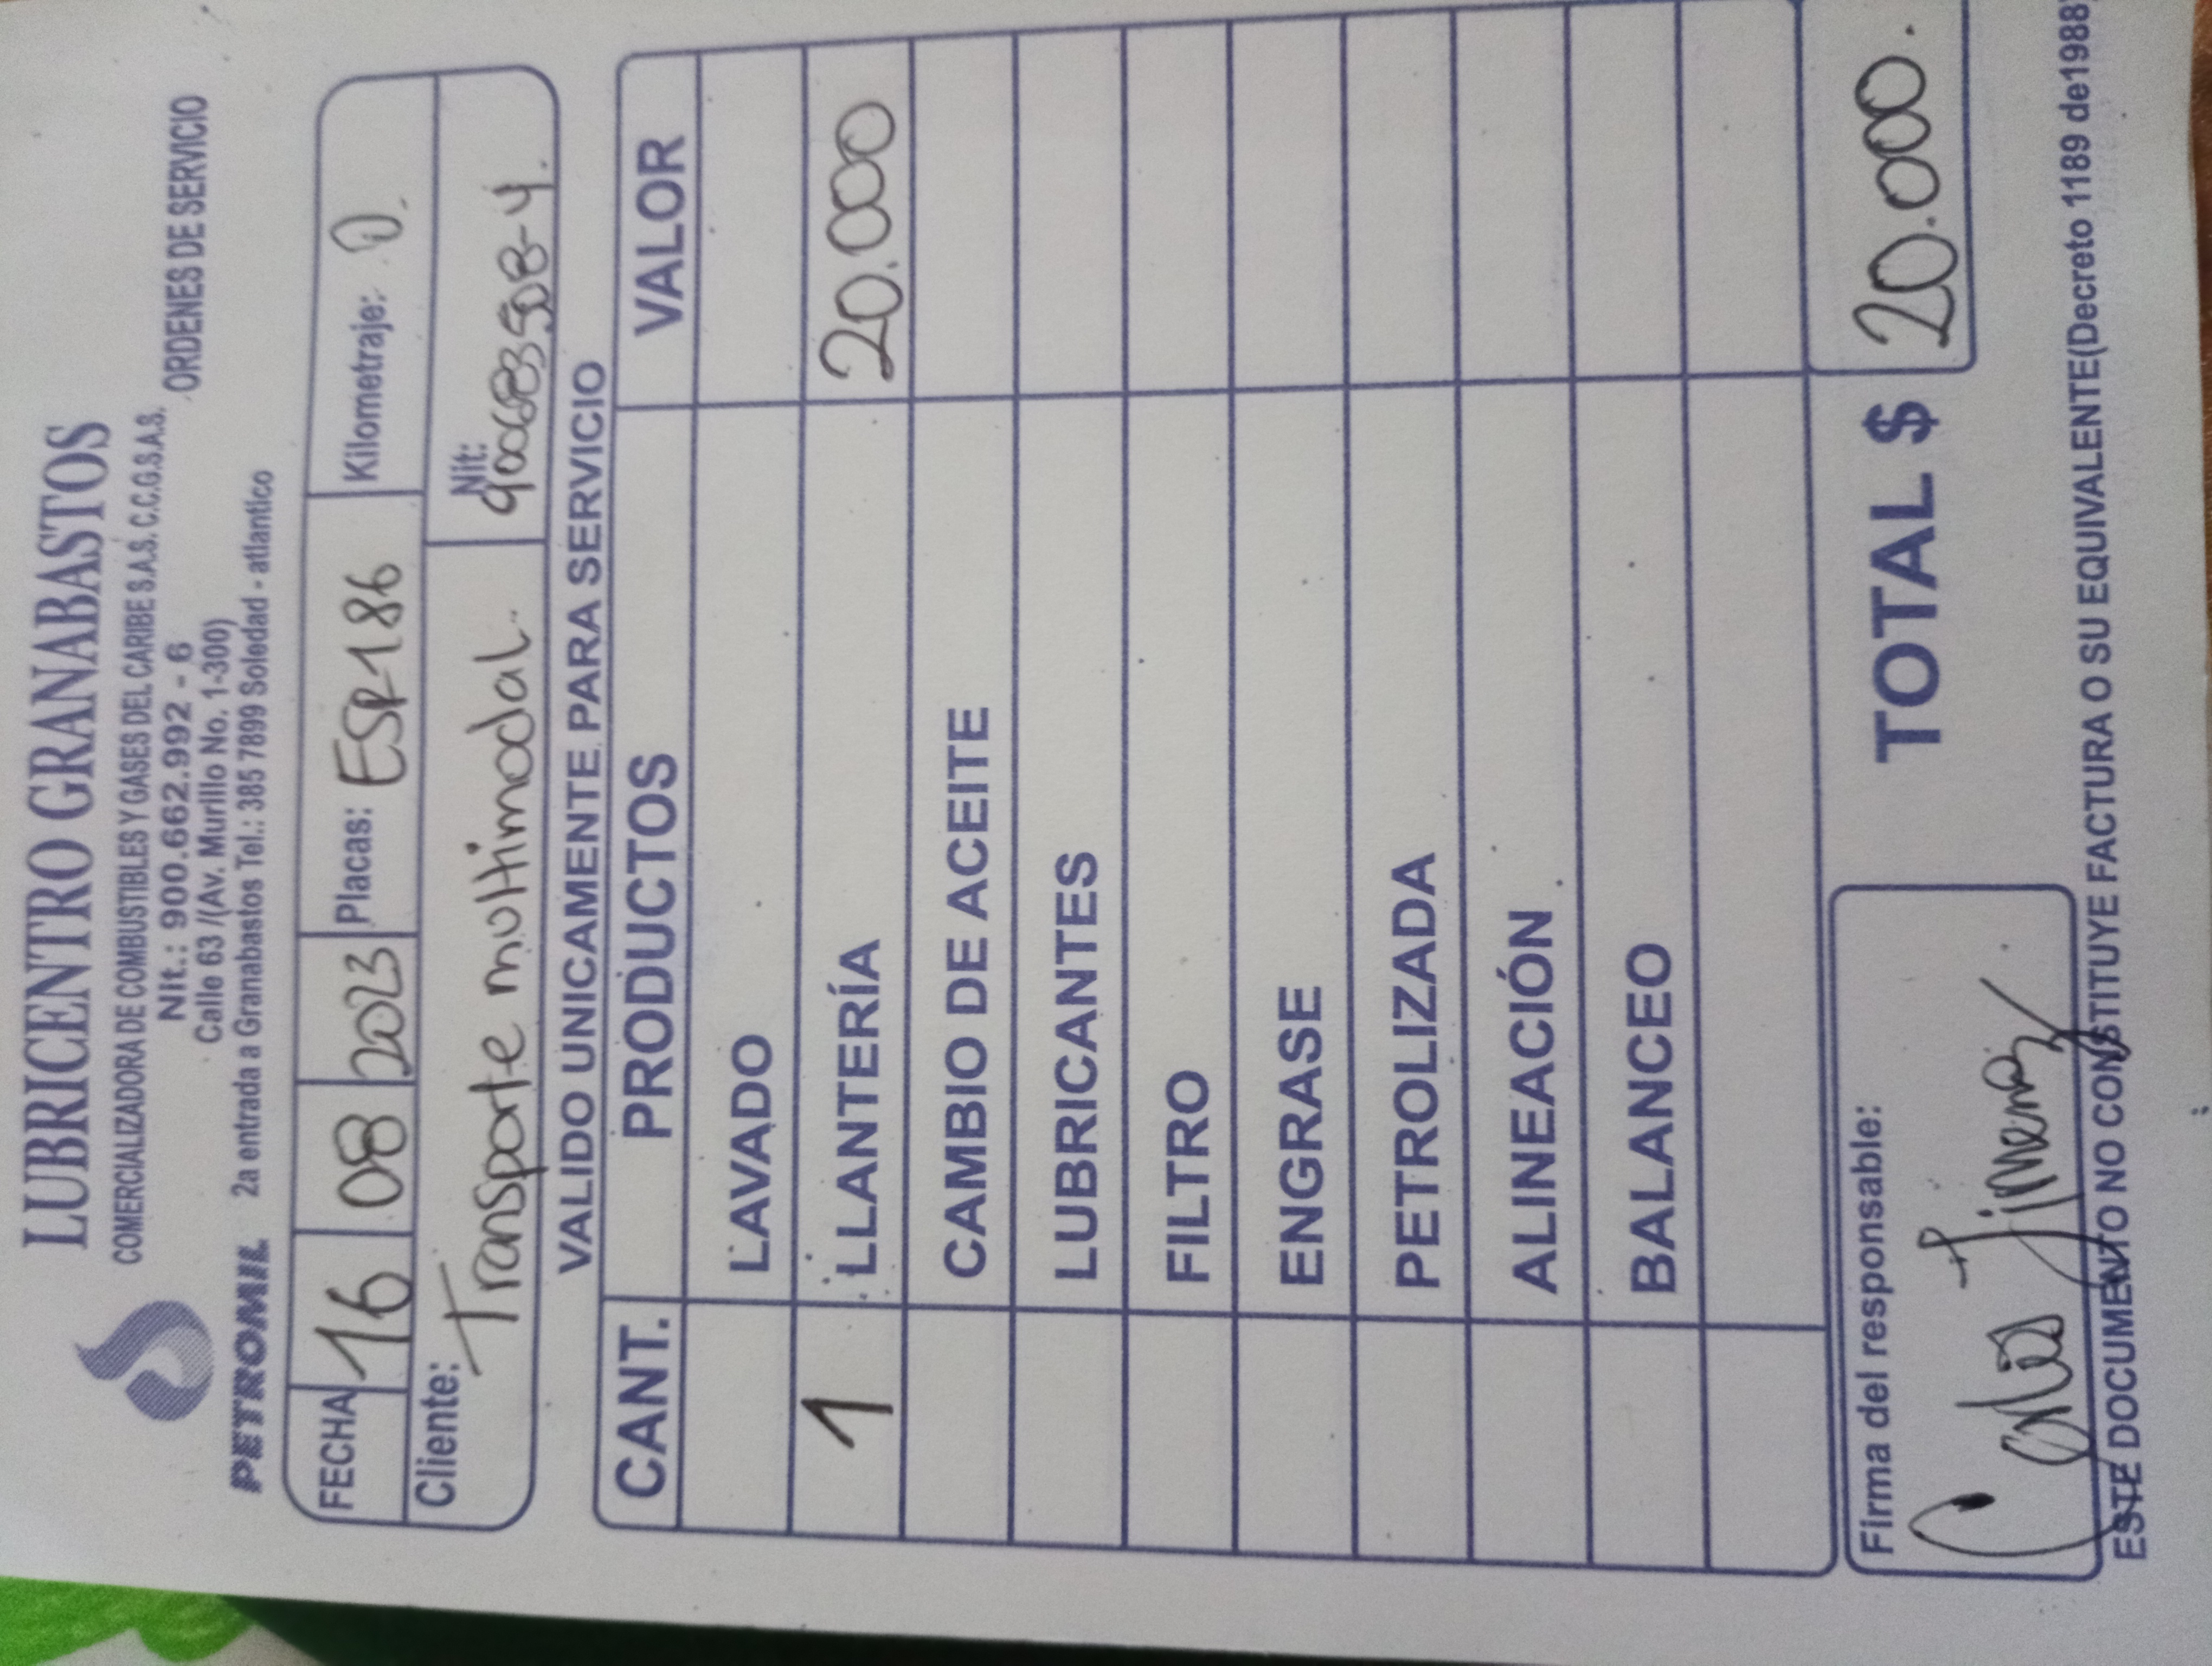 LUBRICENTRO GRANABASTOS
COMERCIALIZADORA DE COMBUSTIBLES Y GASES DEL CARIBE S.A.S. C.C.G.S.A.S.
Nit.: 900.662.992 - 6
ORDENES DE SERVICIO
Calle 63 /(Av. Murillo No. 1-300)
PETROMIL 2a entrada a Granabastos Tel.: 385 7899 Soledad - atlantico
FECHA 16 08 2023 Placas: ESR186 Kilometraje: 0.
Cliente: Transporte multimodal. Nit: 900683508-4.
VALIDO UNICAMENTE PARA SERVICIO
CANT. PRODUCTOS VALOR
LAVADO
1 LLANTERÍA 20.000
CAMBIO DE ACEITE
LUBRICANTES
FILTRO
ENGRASE
PETROLIZADA
ALINEACIÓN
BALANCEO
Firma del responsable: TOTAL $ 20.000.
Jimenez
ESTE DOCUMENTO NO CONSTITUYE FACTURA O SU EQUIVALENTE(Decreto 1189 de1988)